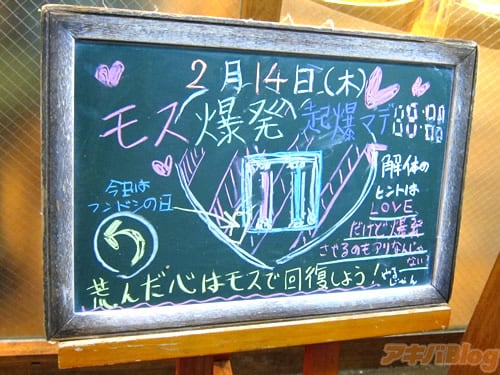 2月14日(木)
モス爆発 起爆マデ 00:00
今日は
フンドシの日
解体の
ヒントは
LOVE
だけど爆発
させるのもアリなんじゃ
ない
う
荒んだ心はモスで回復しよう!
アキバBlog